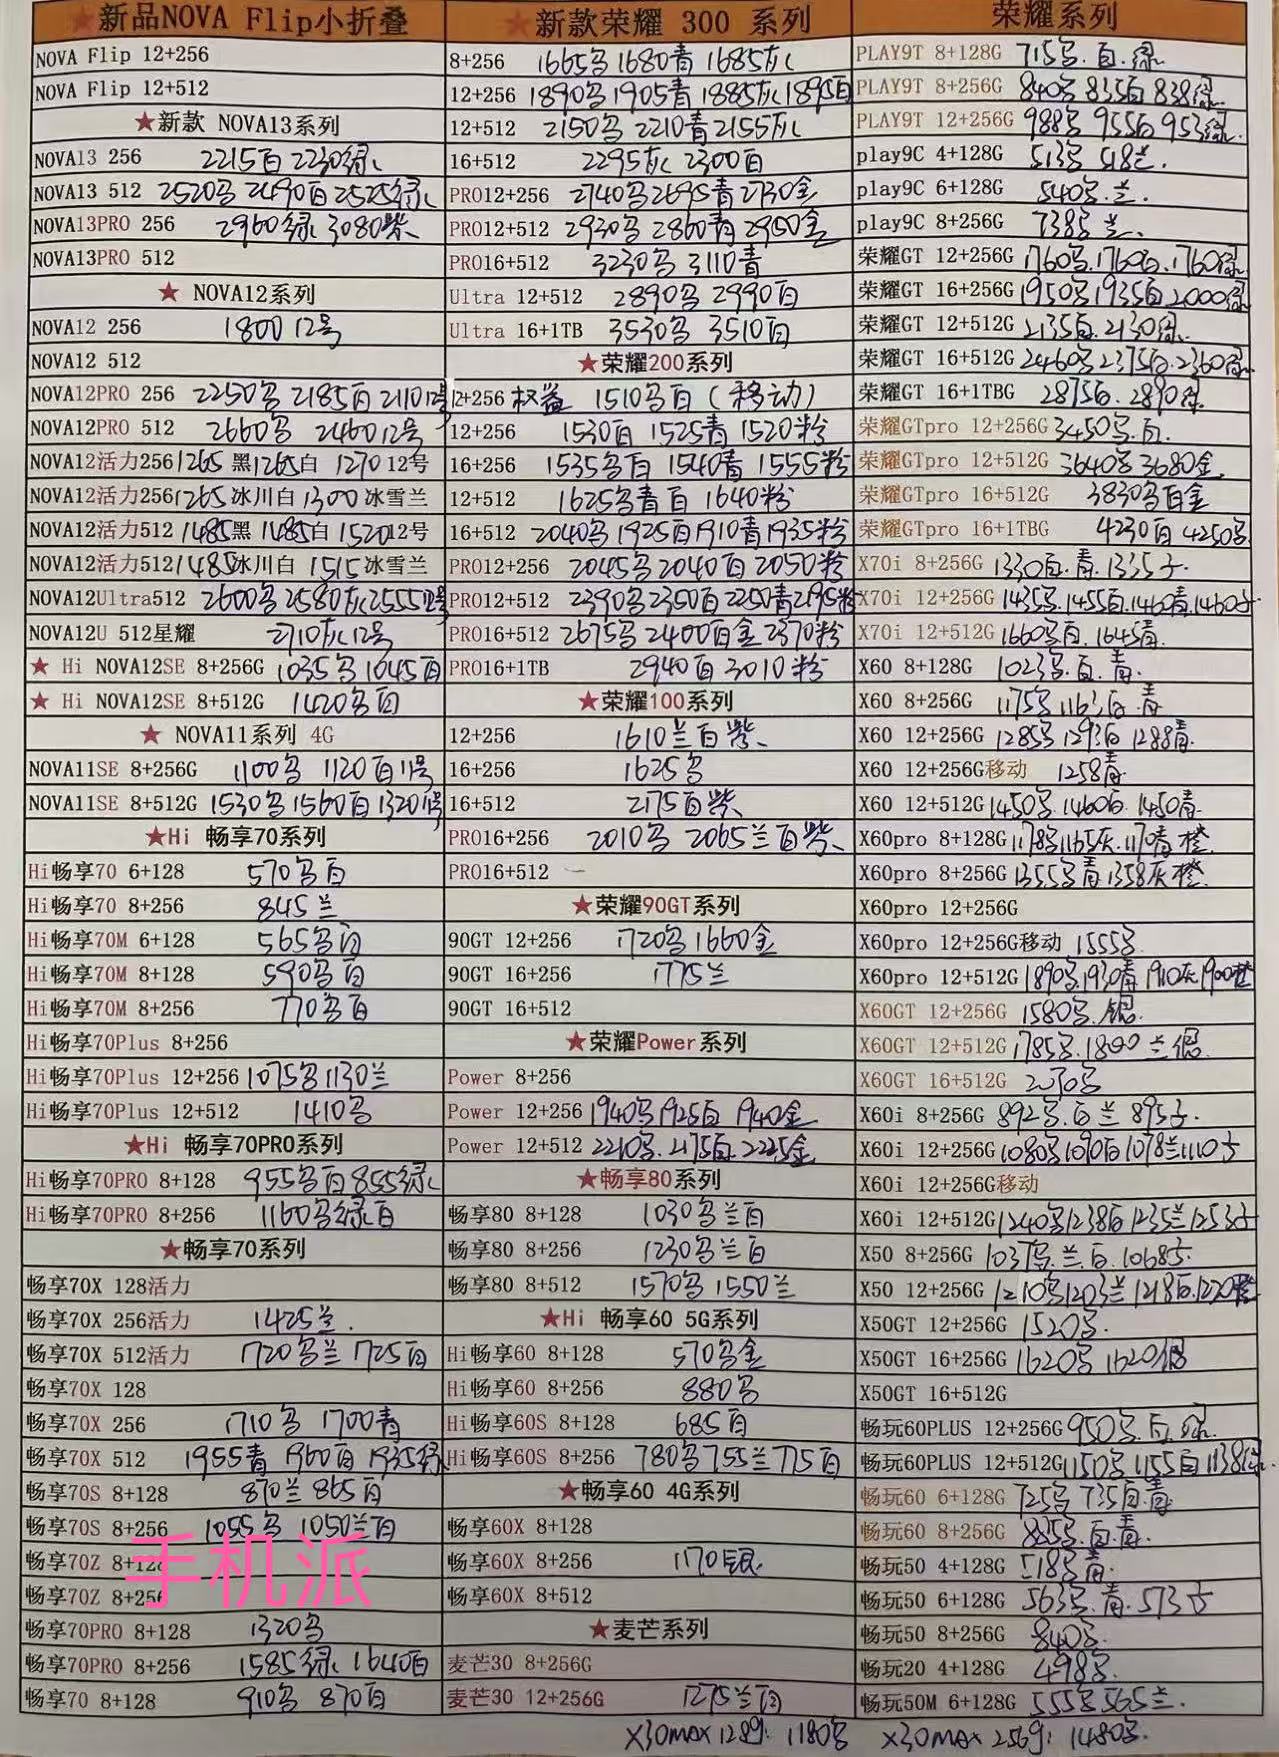 ★新品NOVA Flip小折叠
NOVA Flip 12+256
NOVA Flip 12+512
★新款 NOVA13系列
NOVA13 256 2215白 2230绿
NOVA13 512 2520黑 2490白 2525绿
NOVA13PRO 256 2960绿 3080紫
NOVA13PRO 512
★ NOVA12系列
NOVA12 256 1800 12号
NOVA12 512
NOVA12PRO 256 2250黑 2185白 2110 12号
NOVA12PRO 512 2660黑 2460 12号
NOVA12活力256 1265 黑 1265白 1270 12号
NOVA12活力256 1265 冰川白 1300 冰雪兰
NOVA12活力512 1485黑 1485白 1520 12号
NOVA12活力512 1485冰川白 1515 冰雪兰
NOVA12Ultra512 2600黑 2580灰 2555 12号
NOVA12U 512星耀 2710灰 12号
★ Hi NOVA12SE 8+256G 1035黑 1045白
★ Hi NOVA12SE 8+512G 1420黑白
★ NOVA11系列 4G
NOVA11SE 8+256G 1100黑 1120白 11号
NOVA11SE 8+512G 1530黑 1560白 1320 11号
★Hi 畅享70系列
Hi畅享70 6+128 570黑白
Hi畅享70 8+256 845兰
Hi畅享70M 6+128 565黑白
Hi畅享70M 8+128 590黑白
Hi畅享70M 8+256 770黑白
Hi畅享70Plus 8+256
Hi畅享70Plus 12+256 1075黑 1130兰
Hi畅享70Plus 12+512 1410黑
★Hi 畅享70PRO系列
Hi畅享70PRO 8+128 955黑白 855绿
Hi畅享70PRO 8+256 1160黑绿白
★畅享70系列
畅享70X 128活力
畅享70X 256活力 1425兰.
畅享70X 512活力 1720黑兰 1725白
畅享70X 128
畅享70X 256 1710黑 1700青
畅享70X 512 1955青 1960白 1935绿
畅享70S 8+128 870兰 865白
畅享70S 8+256 1055黑 1050兰白
畅享70Z 8+128
畅享70Z 8+256
手机派
畅享70PRO 8+128 1320黑
畅享70PRO 8+256 1585绿 1640白
畅享70 8+128 910黑 870白
★新款荣耀 300 系列
8+256 1665黑 1680青 1685灰
12+256 1890黑 1905青 1885灰 1895白
12+512 2150黑 2210青 2155灰
16+512 2295灰 2300白
PRO12+256 2740黑 2695青 2730金
PRO12+512 2930黑 2860青 2950金
PRO16+512 3230黑 3110青
Ultra 12+512 2890黑 2990白
Ultra 16+1TB 3530黑 3510白
★荣耀200系列
12+256 权益 1510黑白(移动)
12+256 1530白 1525青 1520粉
16+256 1535黑白 1540青 1555粉
12+512 1625黑青白 1640粉
16+512 2040黑 1925白 1910青 1935粉
PRO12+256 2045黑 2040白 2050粉
PRO12+512 2390黑 2350白 2250青 2195粉
PRO16+512 2675黑 2400白金 2370粉
PRO16+1TB 2940白 3010粉
★荣耀100系列
12+256 1610兰白紫
16+256 1625黑
16+512 2175白紫
PRO16+256 2010黑 2065兰白紫
PRO16+512 —
★荣耀90GT系列
90GT 12+256 1720黑 1660金
90GT 16+256 1775兰
90GT 16+512
★荣耀Power系列
Power 8+256
Power 12+256 1940黑 1925白 1940金
Power 12+512 2210黑. 2175白. 2225金
★畅享80系列
畅享80 8+128 1030黑兰白
畅享80 8+256 1230黑兰白
畅享80 8+512 1570黑 1550兰
★Hi 畅享60 5G系列
Hi畅享60 8+128 570黑金
Hi畅享60 8+256 880黑
Hi畅享60S 8+128 685白
Hi畅享60S 8+256 780黑 755兰 775白
★畅享60 4G系列
畅享60X 8+128
畅享60X 8+256 1170银
畅享60X 8+512
★麦芒系列
麦芒30 8+256G
麦芒30 12+256G 1275兰白
荣耀系列
PLAY9T 8+128G 715黑.白.绿
PLAY9T 8+256G 840黑 835白 838绿.
PLAY9T 12+256G 988黑 955白 953绿.
play9C 4+128G 513黑 518兰.
play9C 6+128G 540黑.兰.
play9C 8+256G 738黑 兰.
荣耀GT 12+256G 1760黑.1760白.1760绿
荣耀GT 16+256G 1950黑 1935白 2000绿
荣耀GT 12+512G 2135白.2130绿.
荣耀GT 16+512G 2460黑 2375白.2360绿
荣耀GT 16+1TBG 2875白.2890绿.
荣耀GTpro 12+256G 3450黑.白.
荣耀GTpro 12+512G 3640黑 3680金.
荣耀GTpro 16+512G 3830黑白金
荣耀GTpro 16+1TBG 4230白 4250黑
X70i 8+256G 1330白.青.1335子.
X70i 12+256G 1455黑.1455白.1460青.1460子
X70i 12+512G 1660黑白.1645青.
X60 8+128G 1023黑.白.青.
X60 8+256G 1175黑 1163白.青
X60 12+256G 1285黑 1293白 1288青.
X60 12+256G移动 1258青
X60 12+512G 1450黑.1460白.1450青.
X60pro 8+128G 1178黑 1165灰.1170青橙.
X60pro 8+256G 1355黑青 1358灰橙.
X60pro 12+256G
X60pro 12+256G移动 1555黑
X60pro 12+512G 1890黑.1930青 1910灰.1900橙
X60GT 12+256G 1580黑.银.
X60GT 12+512G 1785黑.1800兰银
X60GT 16+512G 2030黑
X60i 8+256G 892黑.白兰 895子.
X60i 12+256G 1080黑 1090白 1078兰 1110子
X60i 12+256G移动
X60i 12+512G 1240黑 1238白 1235兰 1253子
X50 8+256G 1037黑.兰.白.1068子.
X50 12+256G 1210黑 1203兰 1218白.1220橙
X50GT 12+256G 1520黑.
X50GT 16+256G 1620黑 1620银
X50GT 16+512G
畅玩60PLUS 12+256G 950黑.白.绿.
畅玩60PLUS 12+512G 1150黑 1155白 1138绿.
畅玩60 6+128G 725黑 735白.青
畅玩60 8+256G 825黑.白.青.
畅玩50 4+128G 518黑青.
畅玩50 6+128G 563黑.青.573子
畅玩50 8+256G 840黑.
畅玩20 4+128G 498黑.
畅玩50M 6+128G 555黑 565兰.
X30MAX 128G: 1180黑 X30MAX 256G: 1480黑.